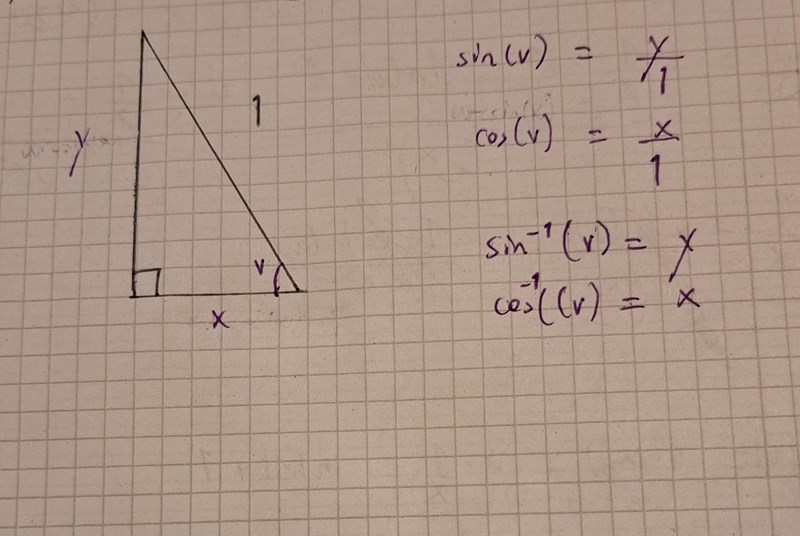 1
y
v
x
sin(v) = y/1
cos(v) = x/1
sin⁻¹(v) = y
cos⁻¹((v) = x